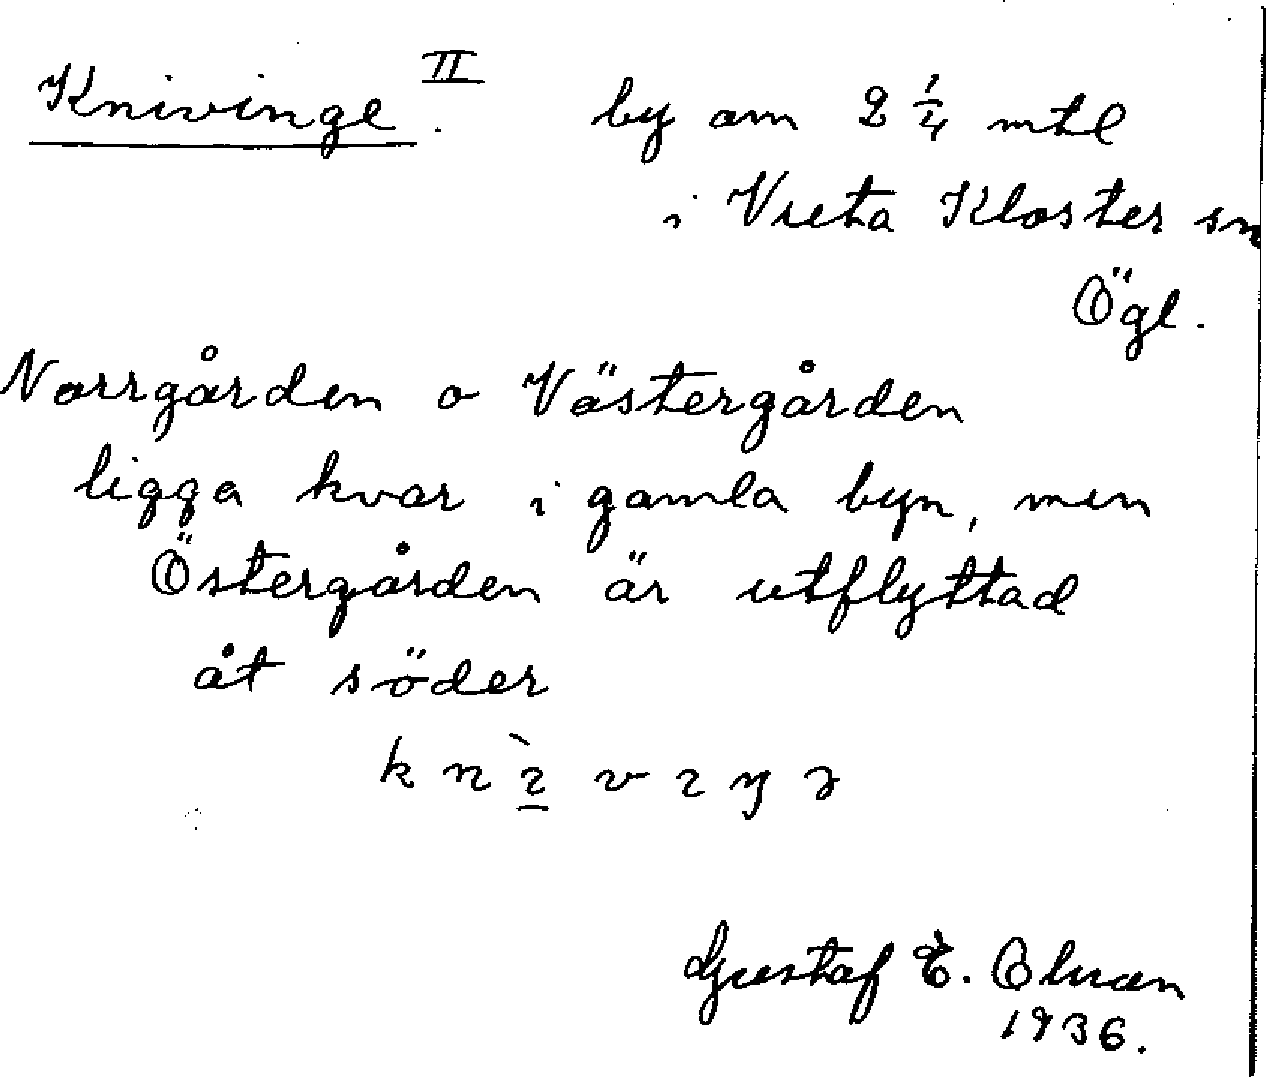 Knivinge II. by om 2 1/4 mtl
i Vreta Kloster sn
Ögl.
Norrgården o Västergården
ligga kvar i gamla byn, men
Östergården är utflyttad
åt söder
k n ì v ı ŋ ə
Gustaf E. Olsson
1936.